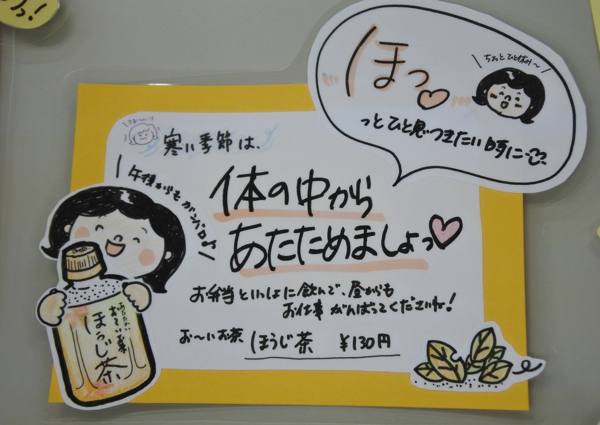 ほっ♡
ちょっとひとやすみ〜
っとひと息つきたい時に…
さむ〜い!!
寒い季節は、
午後からもガンバロ♪
体の中から
あたためましょっ♡
お弁当といっしょに飲んで、昼からも
お仕事がんばってくださいね!
お〜いお茶 ほうじ茶 ¥130円
ほうじ茶